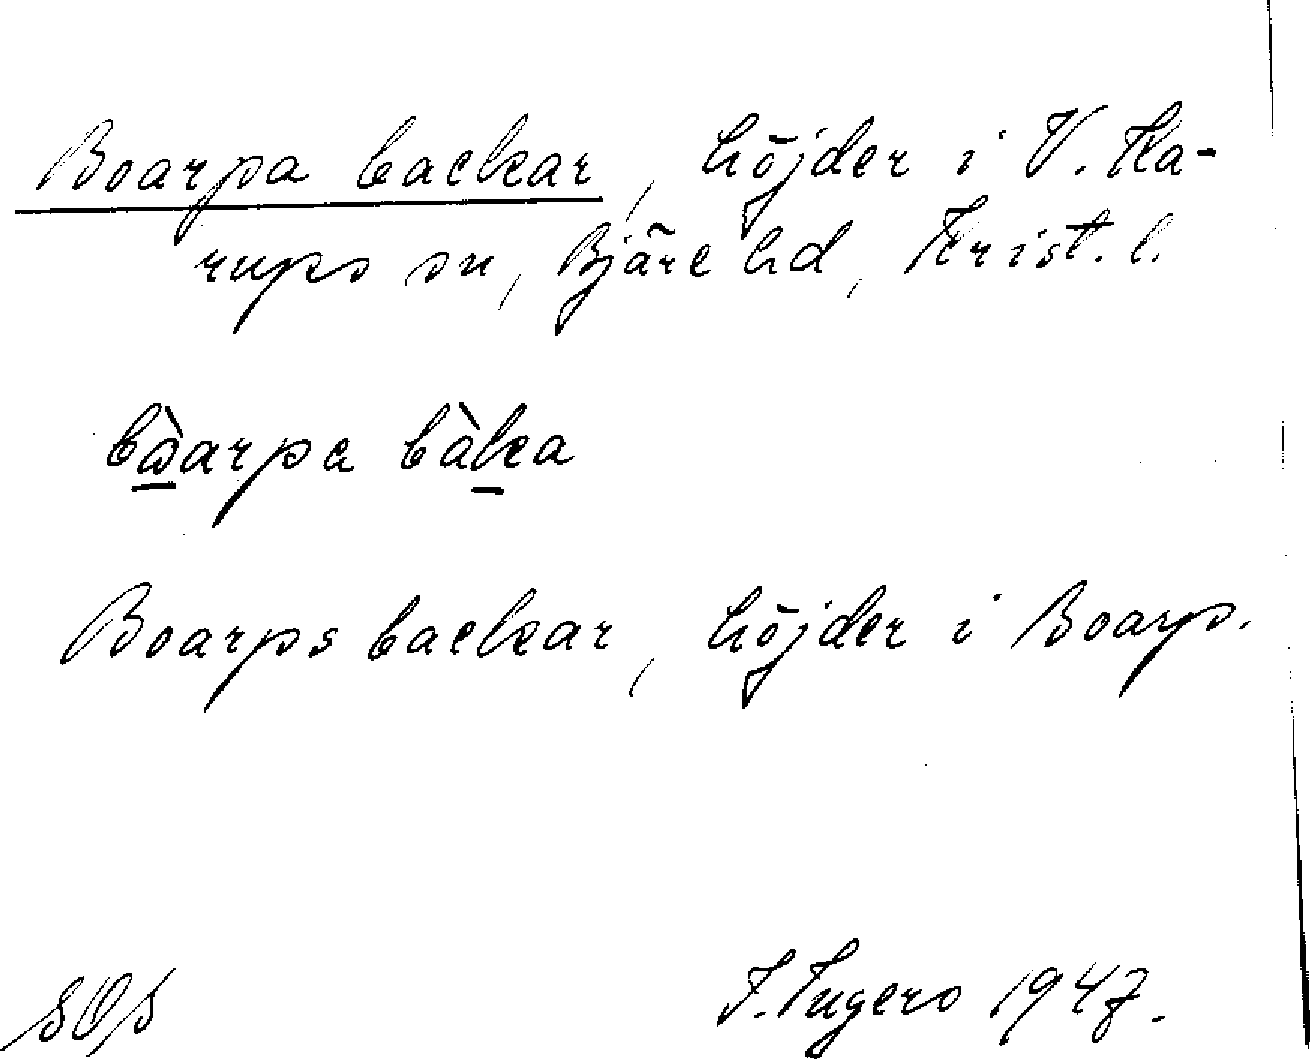 Boarpa backar, höjder i V. Ka-
rups sn, Bjäre hd, Krist. l.
bòarpa bàka
Boarps backar, höjder i Boarp.
SOS
I. Ingero 1947.